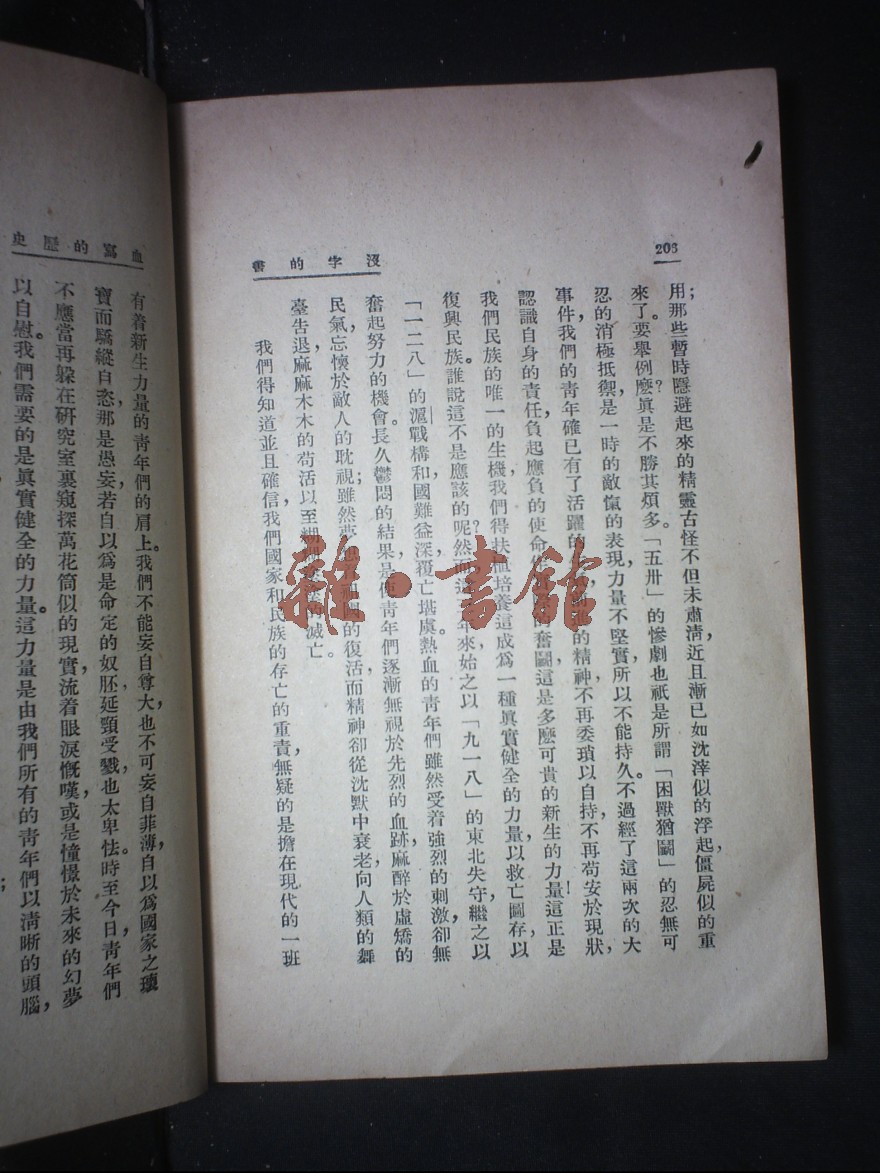 206
沒字的書
用那些暫時隱避起來的精靈古怪不但未肅清，近且漸已如沈滓似的浮起，僵屍似的重
來了。要舉例麼？眞是不勝其煩多。「五卅」的慘劇也祇是所謂「困獸猶鬭」的忍無可
忍的消極抵禦，是一時的敵愾的表現，力量不堅實，所以不能持久。不過經了這兩次的大
事件，我們的青年確已有了活躍的 的精神，不再委瑣以自持，不再苟安於現狀，
認識自身的責任，負起應負的使命 的奮鬭，這是多麼可貴的新生的力量！這正是
我們民族的唯一的生機，我們得扶植培養這成爲一種眞實健全的力量，以救亡圖存，以
復興民族。誰說這不是應該的呢？然而 年來，始之以「九一八」的東北失守，繼之以
「一二八」的滬戰構和，國難益深，覆亡堪虞，熱血的青年們雖然受着強烈的刺激，卻無
奮起努力的機會。長久鬱悶的結果，是使青年們逐漸無視於先烈的血跡，麻醉於虛矯的
民氣，忘懷於敵人的耽視；雖然夢想 的復活，而精神卻從沈默中衰老，向人類的舞
臺告退，麻麻木木的苟活以至 的滅亡。
我們得知道並且確信，我們國家和民族的存亡的重責，無疑的是擔在現代的一班
血寫的歷史
有着新生力量的青年們的肩上。我們不能妄自尊大，也不可妄自菲薄，自以爲國家之瓌
寶而驕縱自恣，那是愚妄，若自以爲是命定的奴胚，延頸受戮，也太卑怯。時至今日，青年們
不應當再躲在研究室裏窺探萬花筒似的現實，流着眼淚慨嘆，或是憧憬於未來的幻夢
以自慰。我們需要的是眞實健全的力量。這力量是由我們所有的青年們以清晰的頭腦，